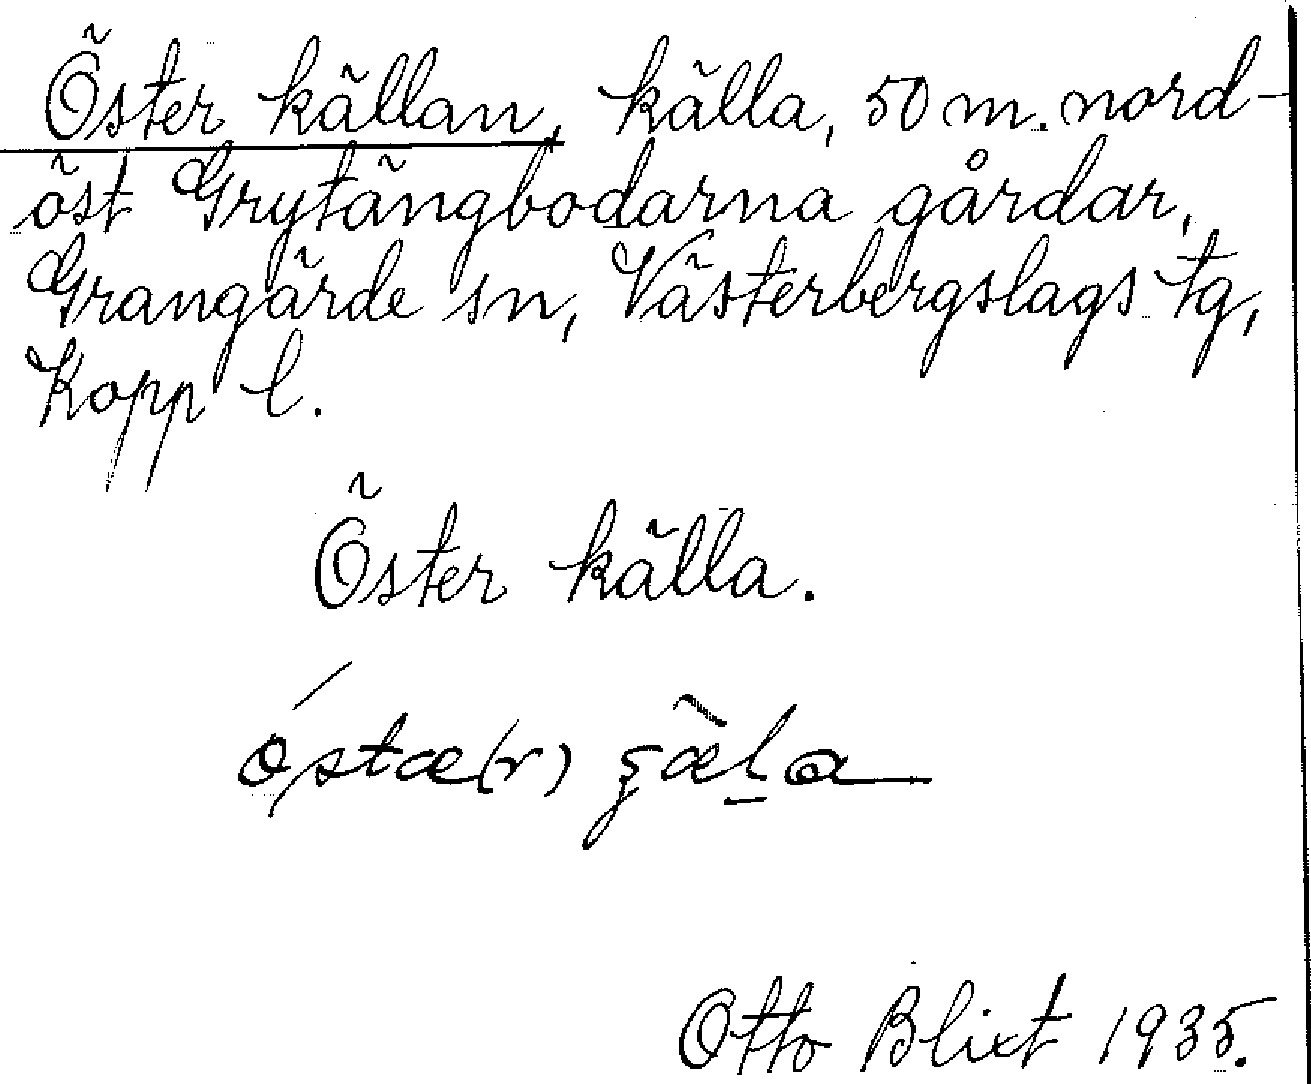 Öster källan, källa, 50 m. nord-
öst Grytängbodarna gårdar,
Grangärde sn, Västerbergslags tg,
Kopp l.
Öster källa.
Otto Blixt 1935.